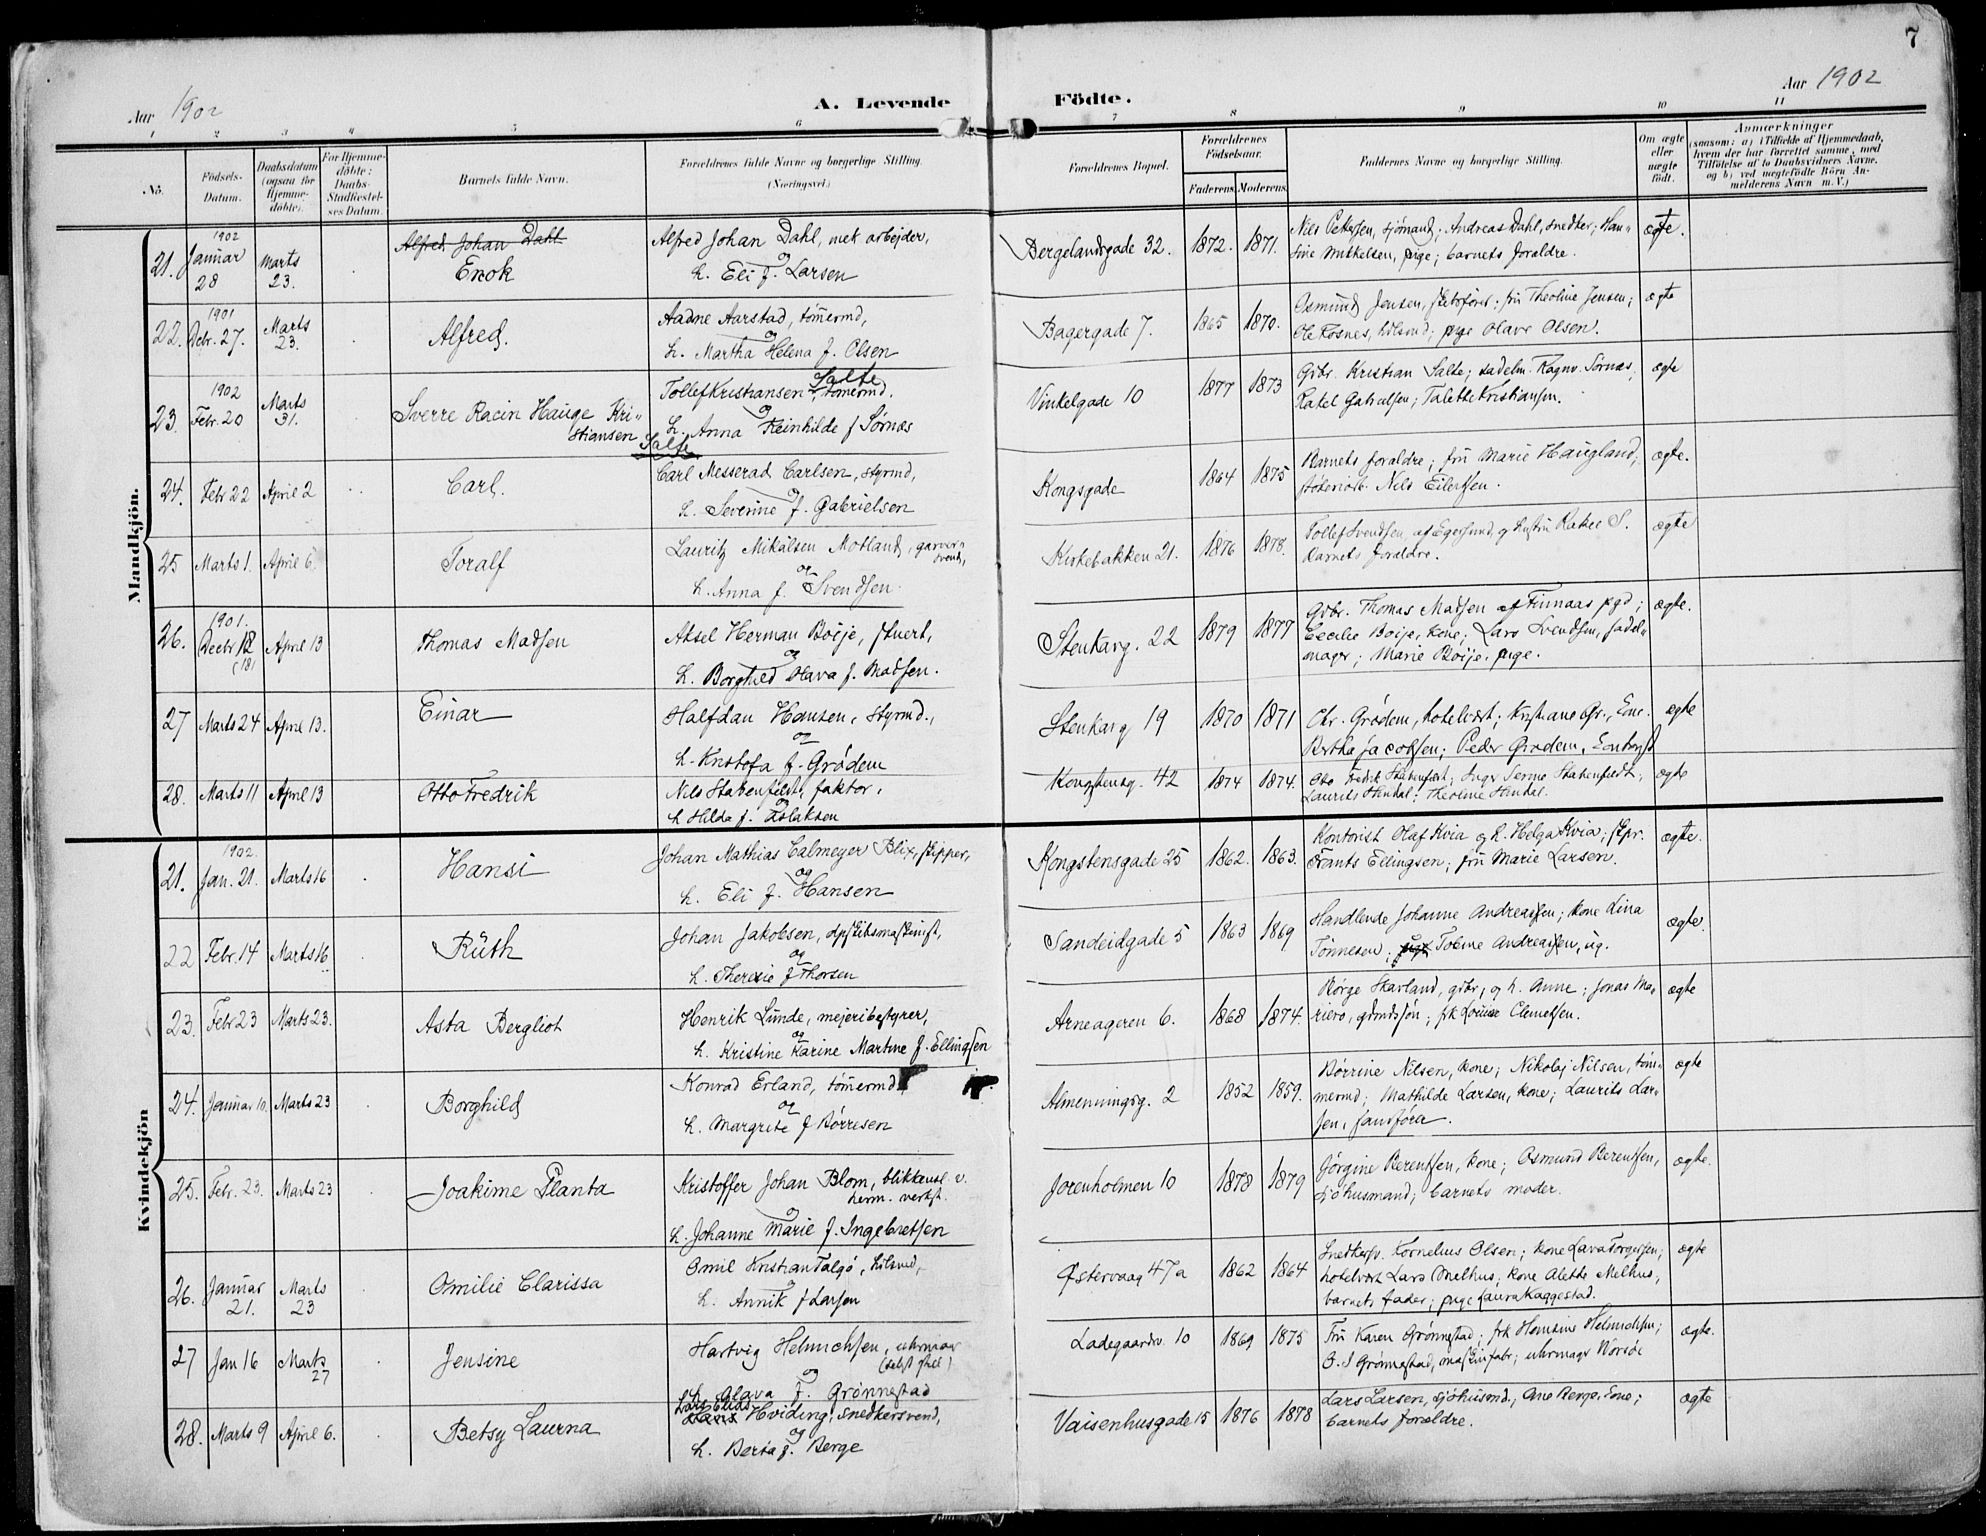 7
Aar 1902
A. Levende Födte.
Aar 1902
1 2 3 4 5 6 7 8 9 10 11
No.
Födsels-Datum.
Daabsdatum (ogsaa for Hjemme-döbte).
For Hjemme-döbte: Daabs-Stadfæstel-ses Datum.
Barnets fulde Navn.
Forældrenes fulde Navne og borgerlige Stilling.
(Næringsvei.)
Forældrenes Bopæl.
Forældrenes Födselsaar.
Faderens. Moderens.
Faddernes Navne og borgerlige Stilling.
Om ægte eller uægte födt.
Anmærkninger
(saasom: a) i Tilfælde af Hjemmedaab,
hvem der har forrettet samme, med
Tilföielse af to Daabsvidners Navne,
og b) ved uægtefödte Börn An-
melderens Navn m. V.)
Mandkjön.
21. 1902 Januar 28 Marts 23. Alfred Johan Dahl Enok Alfred Johan Dahl, mek arbejder, og h. Eli f. Larsen Bergelandsgade 32. 1872. 1871. Nils Pettersen, sjømand; Andreas Dahl, snedker; Han-
sine Mikkelsen, pige; barnets forældre. ægte.
22. 1901 Decbr. 27. Marts 23. Alfred. Aadne Aarstad, tømermd, og h. Martha Helena f. Olsen Bagergade 7. 1865 1870. Osmund Jensen, skibsfører; fru Theoline Jensen;
Ole Rosnes, ; pige Olave Olsen. ægte
23. 1902 Febr. 20 Marts 31. Sverre Racin Hauge Kri-
stiansen Salte Tollef Kristiansen Salte, tømermd. og h. Anna Reinhilde f Sørnæs Vinkelgade 10 1877 1873 Gdbr. Kristian Salte; sadelm. Ragnv. Sørnæs;
Rakel Gabrielsen; Talette Kristiansen. ægte
24. Febr 22 April 2 Carl. Carl Messerad Carlsen, styrmd, og h. Severine f. Gabrielsen Kongsgade 1864 1875 Barnets forældre; fru Marie Haugland;
støberiarb. Nils Eilertsen. ægte.
25 Marts 1. April 6. Toralf Lauritz Mikalsen Motland, garver-
svend, og h. Anna f. Svendsen. Kirkebakken 21. 1876 1878. Tollef Svendsen, af Egersund, og hustru Rakel S.
Barnets forældre. ægte
26. 1901. Decbr 18 (18) April 13 Thomas Madsen Aksel Herman Boije, stuert, og h. Borghild Olava f. Madsen. Stenkarg. 22 1879 1877 Gdbr. Thomas Madsen af Finnaas pgd;
Cecilie Boije, kone; Lars Svendsen, sadel-
mager; Marie Boije, pige. ægte.
27 Marts 24 April 13. Einar Halfdan Hansen, styrmd., og h. Kristofa f. Grødem Stenkarg 19 1870 1871 Chr. Grødem, hotelvært; Kristiane Gr.,
Bertha Jacobsen; Peder Grødem, ægte
28. Marts 11 April 13 Otto Fredrik Nils Stabenfeldt, faktor, og h Hilda f. Aslaksen Kongstensg. 42 1874 1874. Otto Fredrik Stabenfeldt; Inger Serine Stabenfeldt;
Laurits Hindal; Theoline Hindal. ægte
Kvindekjön
21. 1902. Jan. 21. Marts 16 Hansi Johan Mathias Calmeyer Blix, skipper, og h. Eli f. Hansen Kongstensgade 25 1862. 1863. Kontorist Olaf Kvia og h. Helga Kvia; skpr.
Frants Ellingsen; fru Marie Larsen. ægte.
22 Febr. 14 Marts 16 Ruth Johan Jakobsen, dpskibsmaskinist, og h. Theresie f Thorsen Sandeidgade 5 1863 1869 Handlende Johanne Andreassen; kone Lina
Tønnesen; pige Tobine Andreassen, ug. ægte.
23. Febr 23 Marts 23. Asta Bergliot Henrik Lunde, mejeribestyrer, og h. Kristine Karine Martine f. Ellingsen Arneageren 6. 1868 1874. Børge Skavland, gdbr, og h. Anne; Jonas Ma-
riero, gdmdssøn; frk Lovise Clemetsen. ægte
24. Januar 10. Marts 23 Borghild Konrad Erland, tømermd og h. Margrete f Børresen Almenningsg. 2 1852 1859. Børrine Nilsen, kone; Nikolaj Nilsen, tøm-
mermd; Mathilde Larsen, kone; Laurits Lar-
sen, . ægte
25. Febr. 23. Marts 23 Joakime Planta Kristoffer Johan Blom, blikkensl. v.
herm. verkst. og h. Johanne Marie f. Ingebretsen Jorenholmen 10 1878 1879 Jørgine Berentsen, kone; Osmund Berentsen,
sjøhusmand; barnets moder. ægte.
26. Januar 21. Marts 23 Omilie Clarissa Omil Kristian Talgø, , og h. Annik f Larsen Østervaag 47a 1862 1864 Snedkersv. Kornelius Olsen; kone Lava Torgersen;
hotelvært Lars Melhus; kone Alette Melhus,
barnets fader; pige Laura Kaggestad. ægte
27 Jan 16 Marts 27 Jensine Hartvig Helmichsen, uhrmager
(selvst. still) og h. Olava f. Grønnestad Ladegaardsv. 10 1869 1875 Fru Karen Grønnestad; frk Hansine Helmichsen;
O. J Grønnestad, maskinfabr; uhrmager Norsoe ægte.
28. Marts 9 April 6. Betsy Laurna Lars Elias Hviding, snedkersvend, og h. Berta f. Berge Vaisenhusgade 15 1876 1878 Lars Larsen, sjøhusmd.; Ane Berge, kone;
barnets forældre. ægte